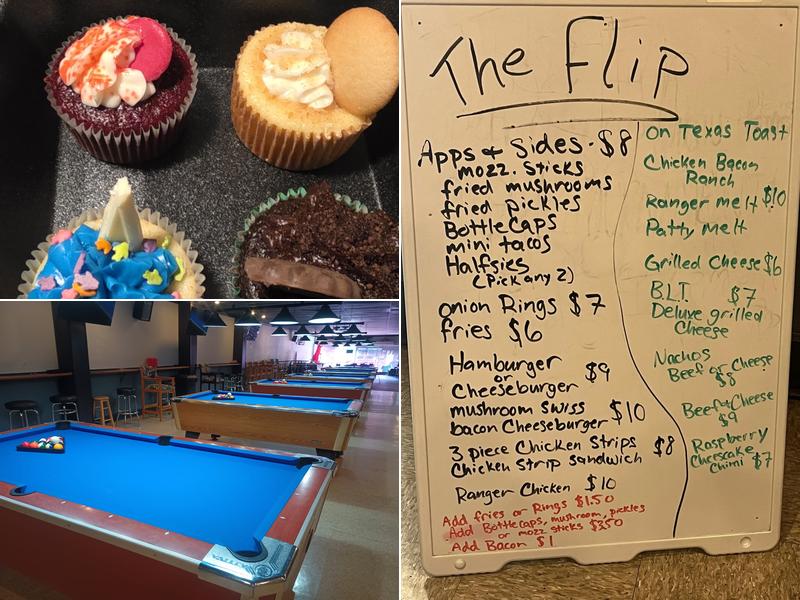 The Flip
Apps & Sides - $8
mozz. sticks
fried mushrooms
fried pickles
BottleCaps
mini tacos
Halfsies
(Pick any 2)
onion Rings $7
fries $6
Hamburger
or $9
Cheeseburger
mushroom Swiss
bacon Cheeseburger $10
3 piece Chicken Strips $8
Chicken Strip Sandwich
Ranger Chicken $10
Add fries or Rings $1.50
Add Bottlecaps, mushroom, pickles
or mozz sticks $3.50
Add Bacon $1
on Texas Toast
Chicken Bacon
Ranch
Ranger melt $10
Patty melt
Grilled Cheese $6
B.L.T. $7
Deluxe grilled
Cheese
Nachos
Beef or Cheese
$8
Beef & Cheese
$9
Raspberry
Chescake
Chimi $7
VALLEY